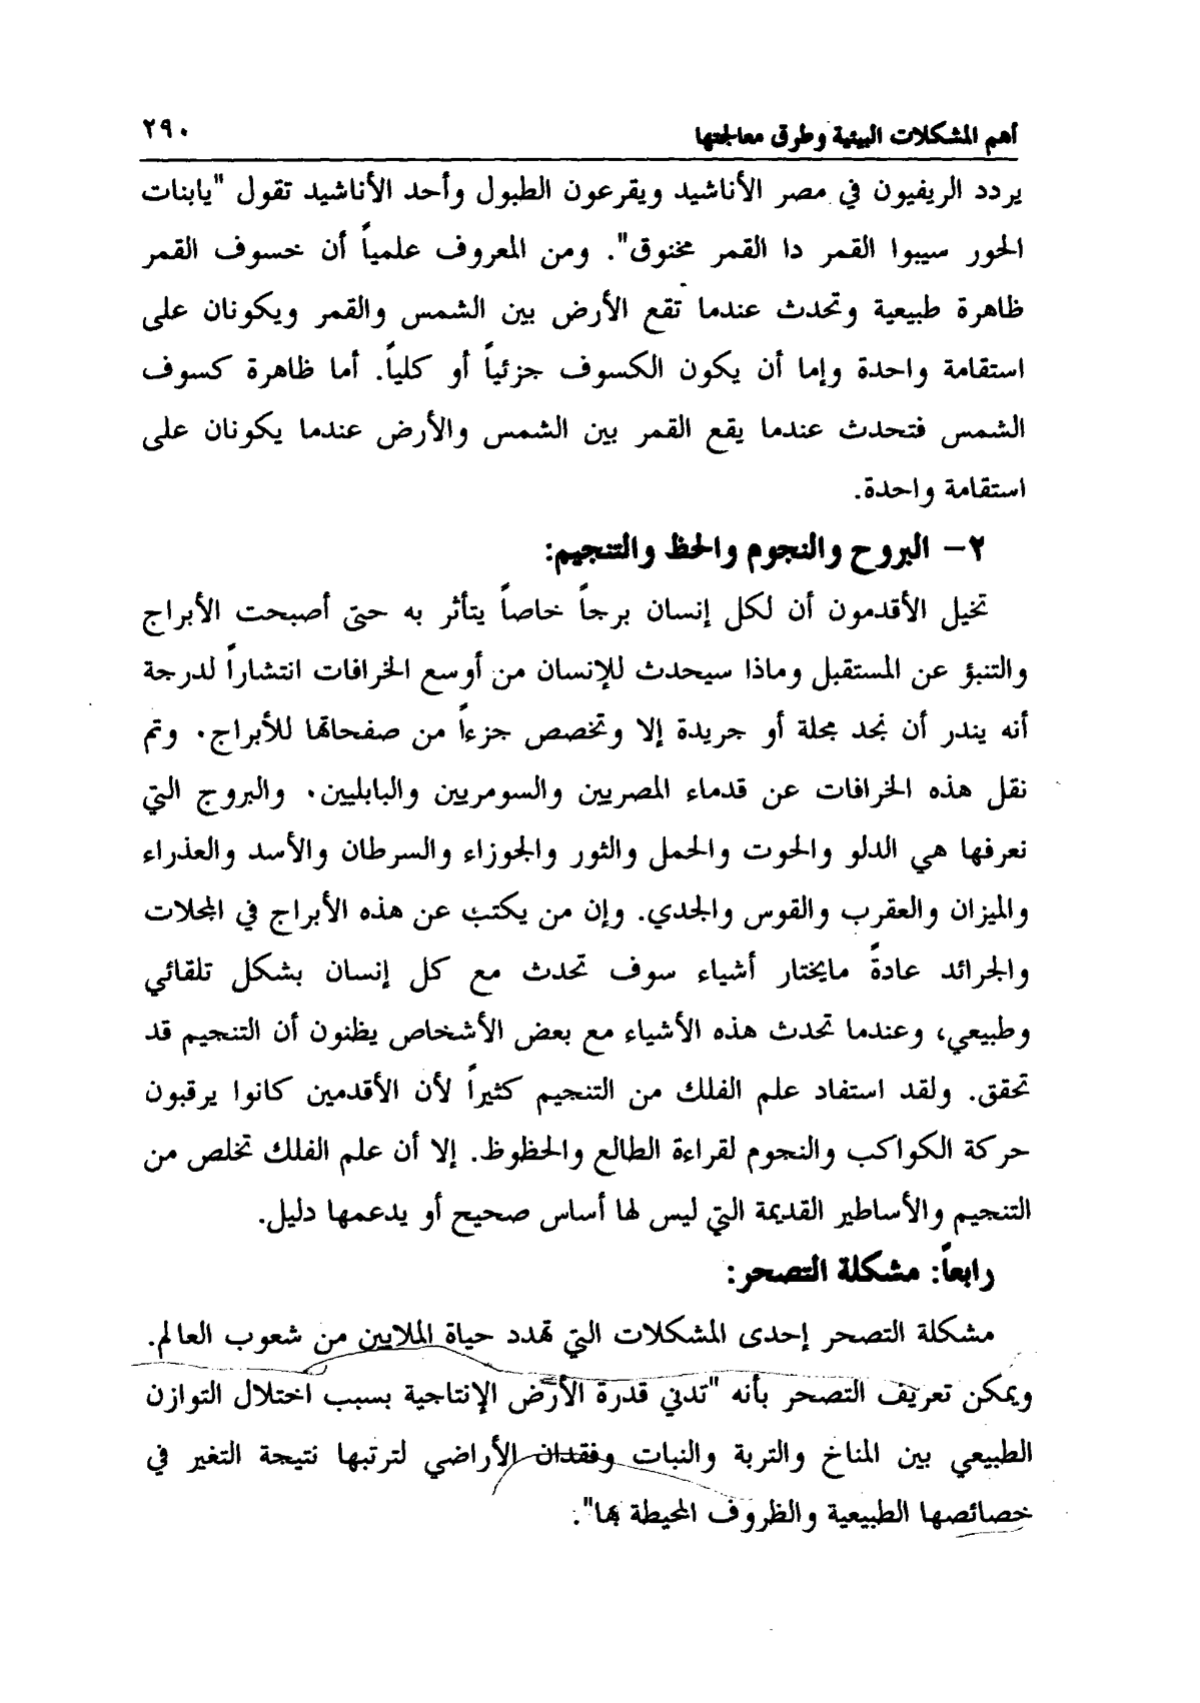 أهم المشكلات البيئية وطرق معالجتها
٢٩٠
يردد الريفيون في مصر الأناشيد ويقرعون الطبول وأحد الأناشيد تقول "يابنات
الحور سيبوا القمر دا القمر مخنوق". ومن المعروف علمياً أن خسوف القمر
ظاهرة طبيعية وتحدث عندما تقع الأرض بين الشمس والقمر ويكونان على
استقامة واحدة وإما أن يكون الكسوف جزئياً أو كلياً. أما ظاهرة كسوف
الشمس فتحدث عندما يقع القمر بين الشمس والأرض عندما يكونان على
استقامة واحدة.
٢- البروج والنجوم والحظ والتنجيم:
تخيل الأقدمون أن لكل إنسان برجاً خاصاً يتأثر به حتى أصبحت الأبراج
والتنبؤ عن المستقبل وماذا سيحدث للإنسان من أوسع الخرافات انتشاراً لدرجة
أنه يندر أن نجد مجلة أو جريدة إلا وتخصص جزءاً من صفحاتها للأبراج. وتم
نقل هذه الخرافات عن قدماء المصريين والسومريين والبابليين. والبروج التي
نعرفها هي الدلو والحوت والحمل والثور والجوزاء والسرطان والأسد والعذراء
والميزان والعقرب والقوس والجدي. وإن من يكتب عن هذه الأبراج في المجلات
والجرائد عادةً مايختار أشياء سوف تحدث مع كل إنسان بشكل تلقائي
وطبيعي، وعندما تحدث هذه الأشياء مع بعض الأشخاص يظنون أن التنجيم قد
تحقق. ولقد استفاد علم الفلك من التنجيم كثيراً لأن الأقدمين كانوا يرقبون
حركة الكواكب والنجوم لقراءة الطالع والحظوظ. إلا أن علم الفلك تخلص من
التنجيم والأساطير القديمة التي ليس لها أساس صحيح أو يدعمها دليل.
رابعاً: مشكلة التصحر:
مشكلة التصحر إحدى المشكلات التي تهدد حياة الملايين من شعوب العالم.
ويمكن تعريف التصحر بأنه "تدني قدرة الأرض الإنتاجية بسبب اختلال التوازن
الطبيعي بين المناخ والتربة والنبات وفقدان الأراضي لترتبها نتيجة التغير في
خصائصها الطبيعية والظروف المحيطة بها".